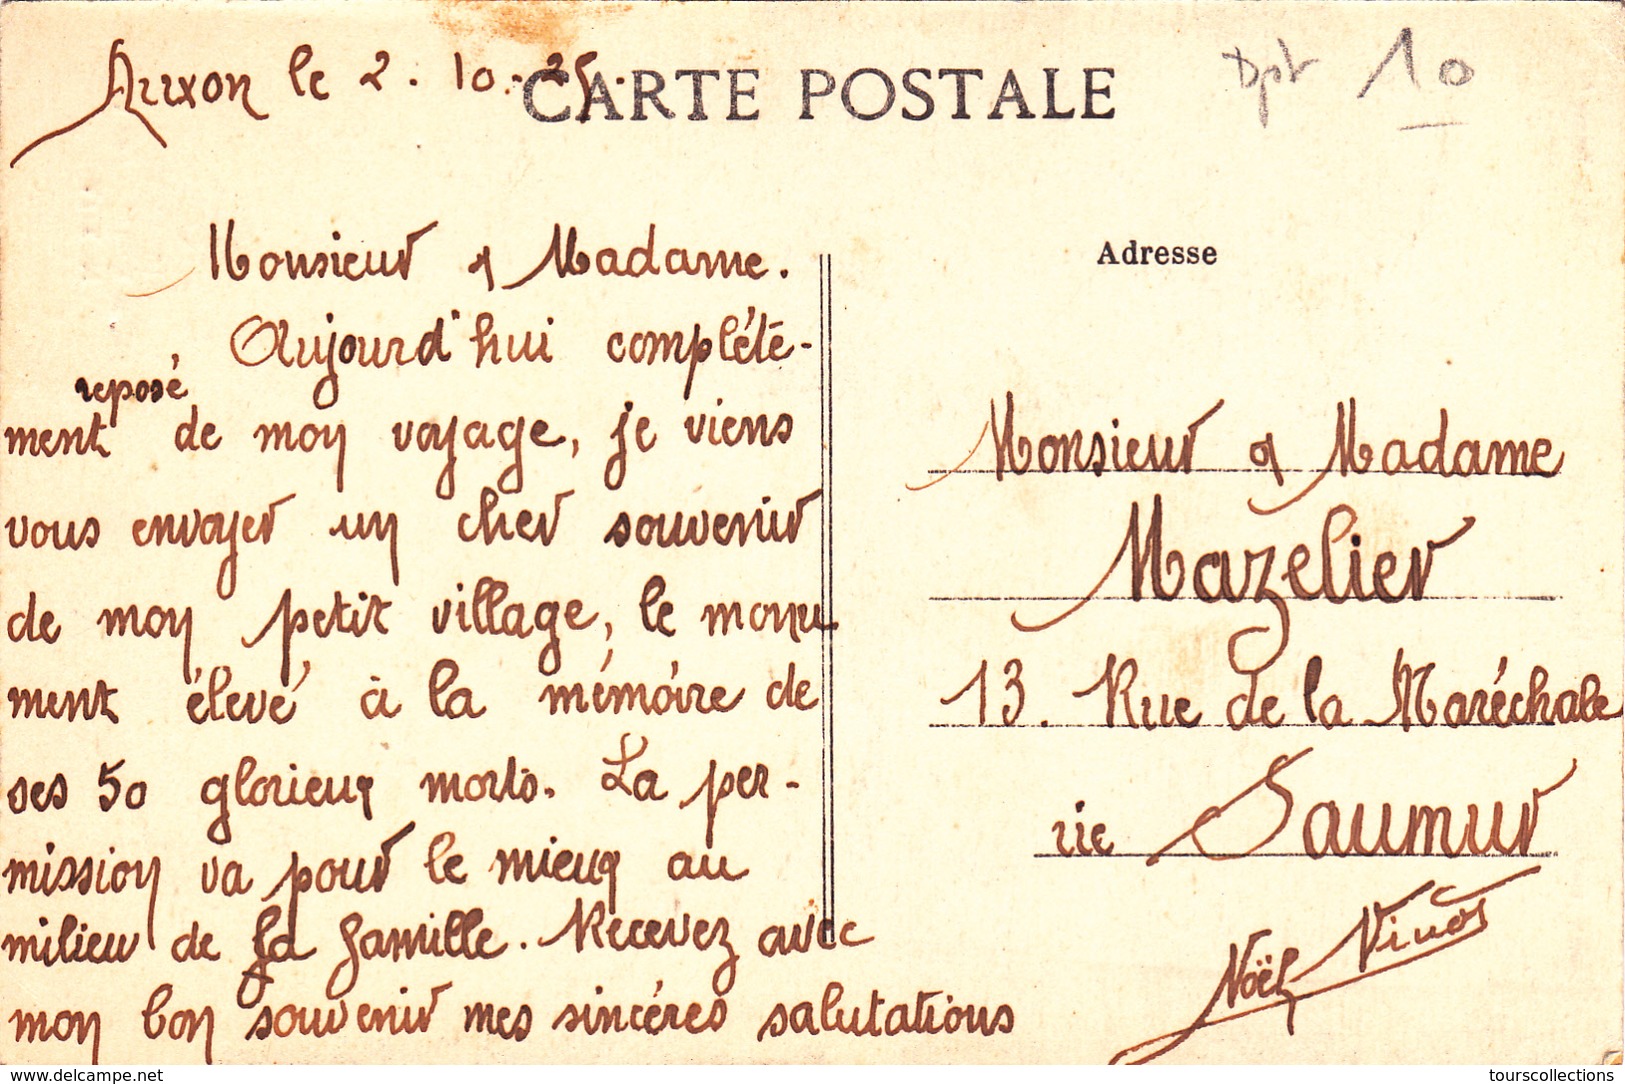 Auxon le 2. 10. 25.
CARTE POSTALE
Dpt 10
Monsieur & Madame.
Aujourd'hui complète-
reposé
ment de mon voyage, je viens
vous envoyer un cher souvenir
de mon petit village, le monu
ment élevé à la mémoire de
ses 50 glorieux morts. La per-
mission va pour le mieux au
milieu de la famille. Recevez avec
mon bon souvenir mes sincères salutations
Adresse
Monsieur & Madame
Mazelier
13. Rue de la Maréchale
rie Saumur
Noël
www.delcampe.net
tourscollections